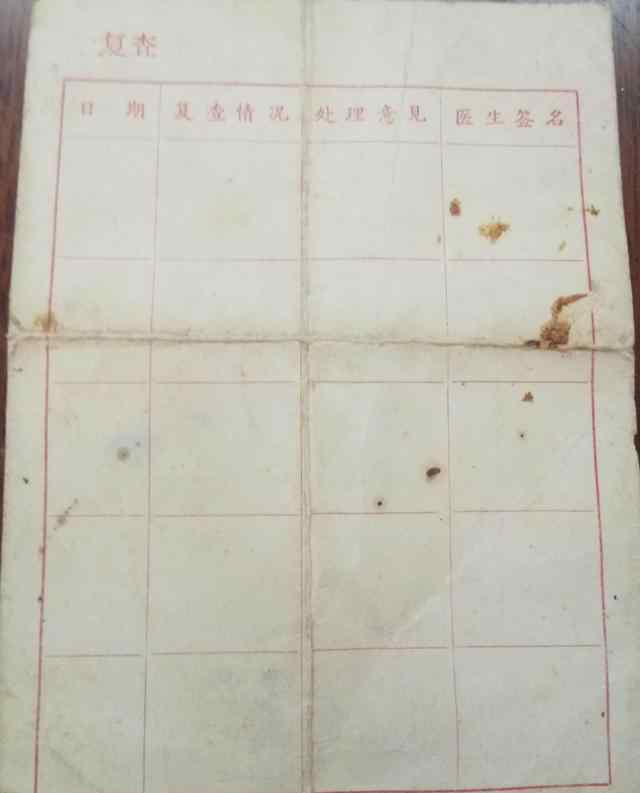 复查
日期 复查情况 处理意见 医生签名